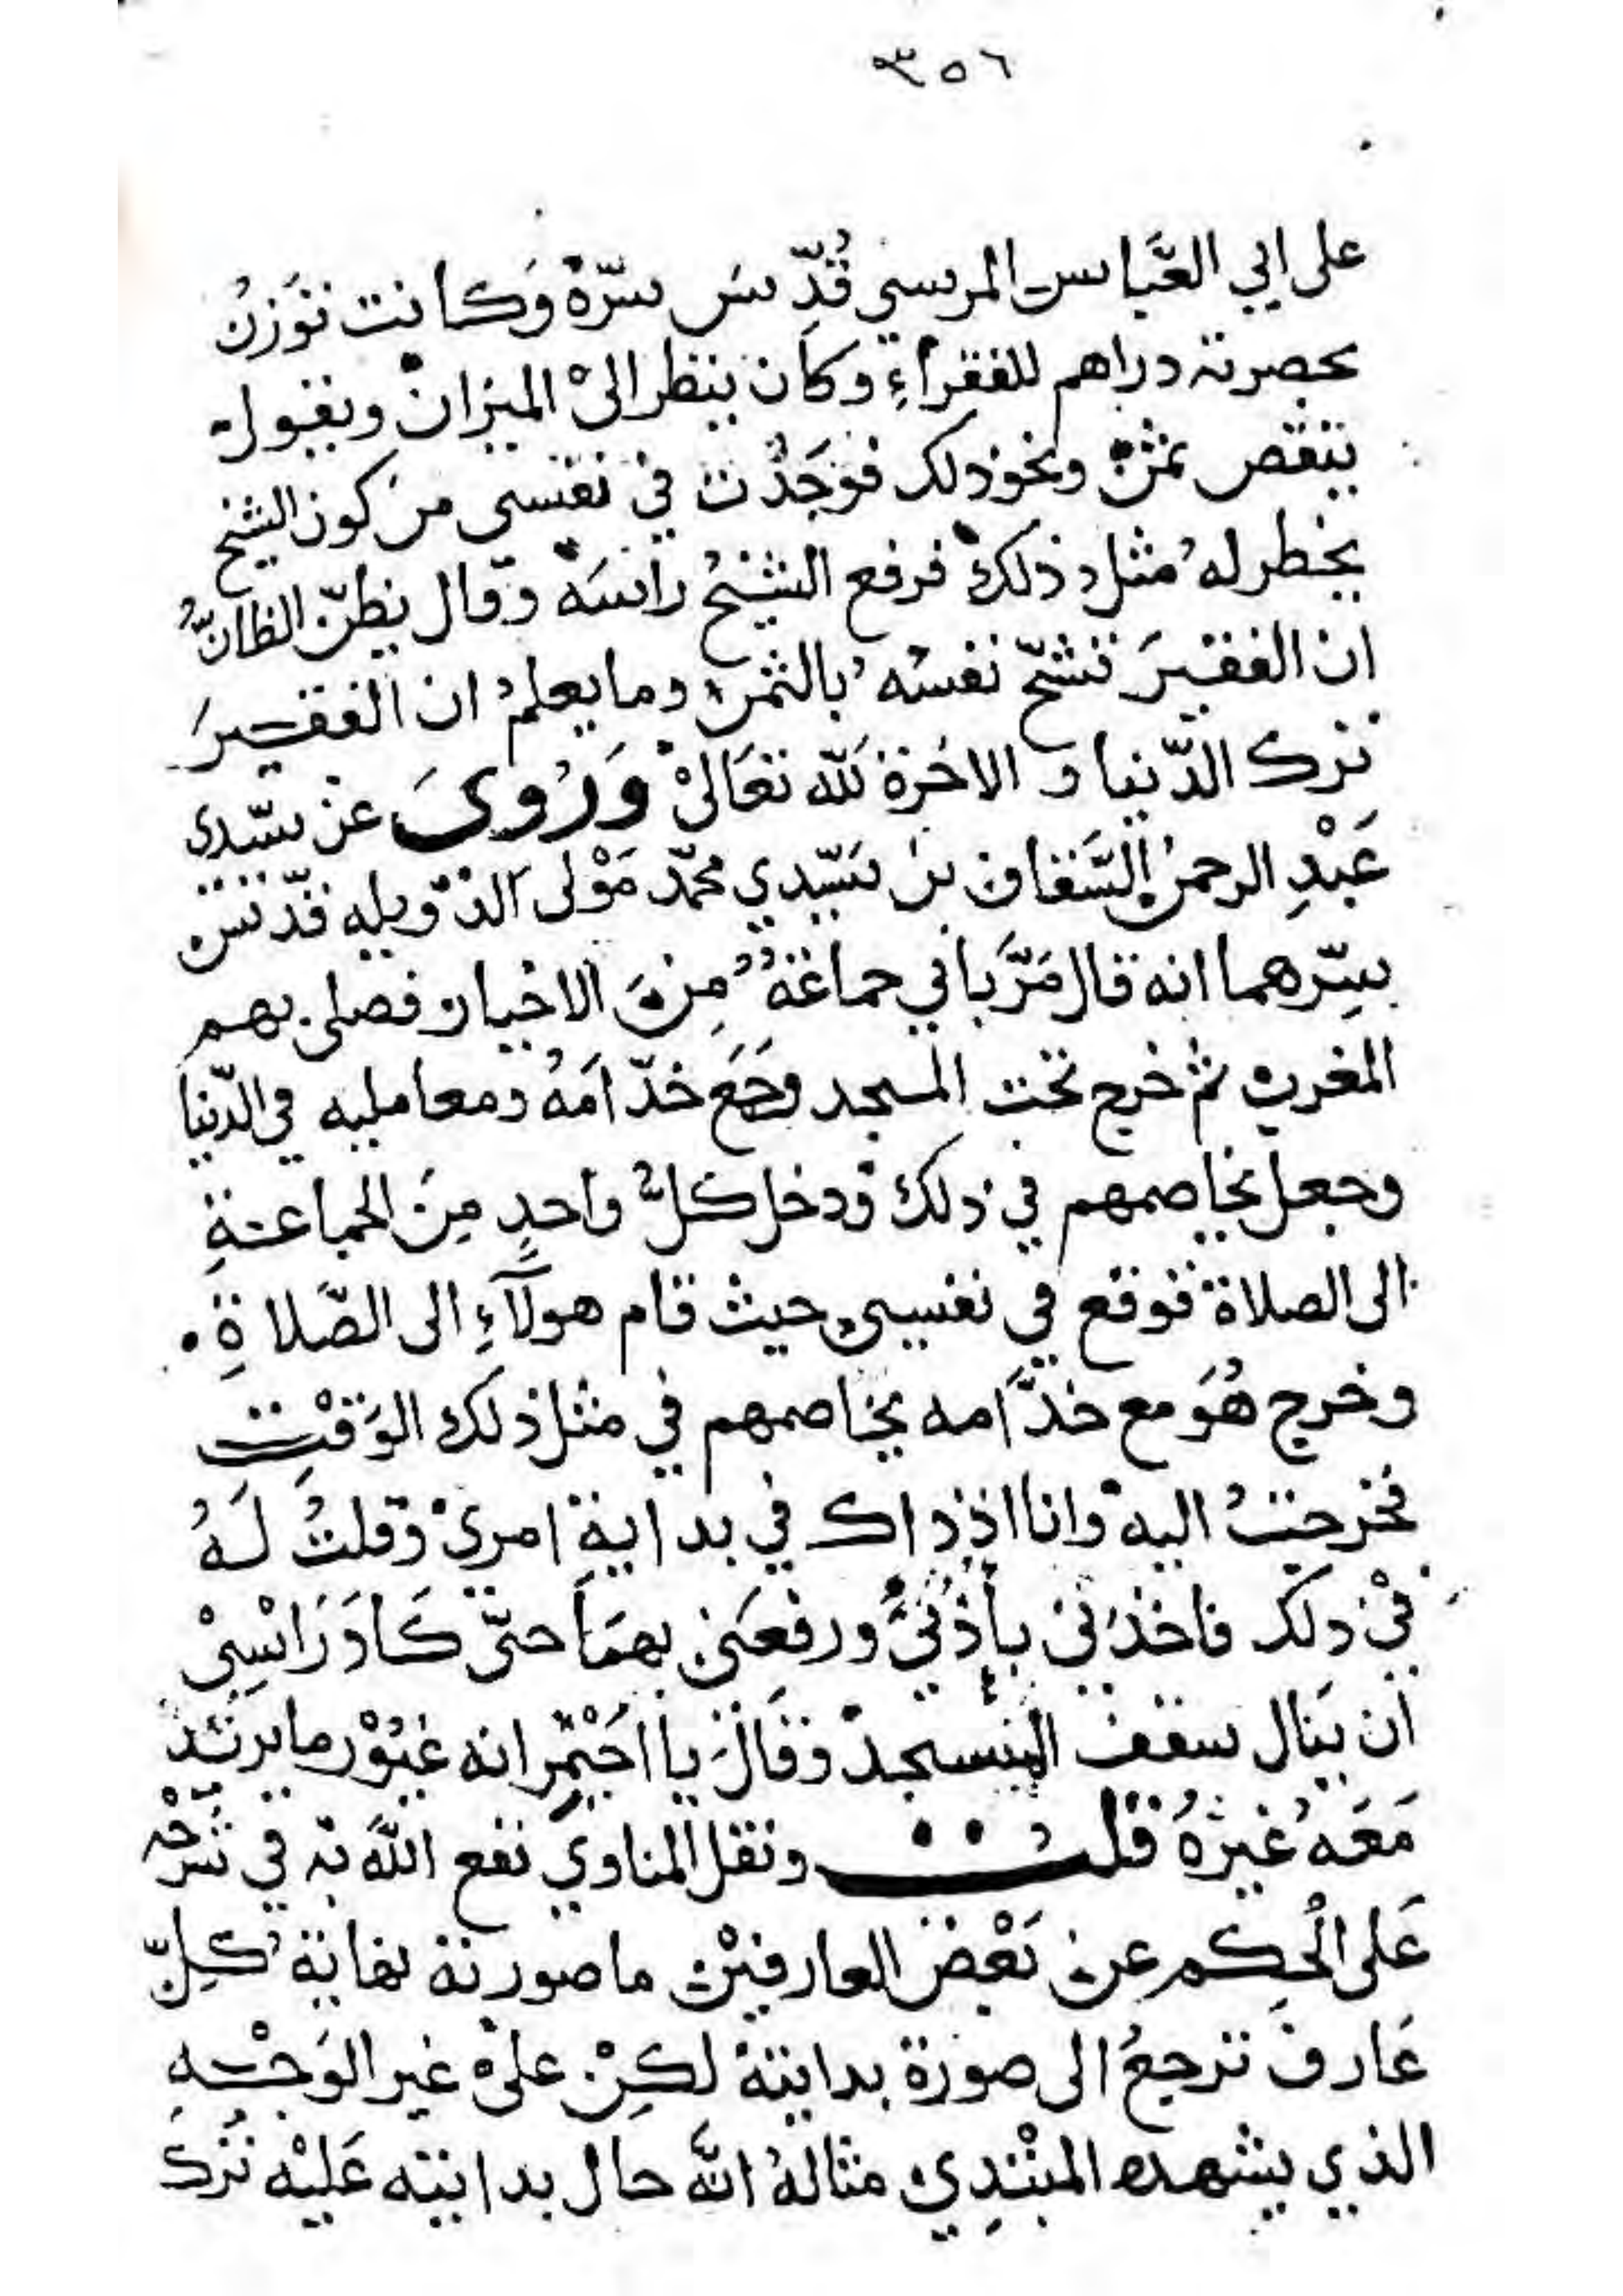 ٣٥٦
على ابي العَّباس المرسي قُدِّسَ سرّهْ وَكانت تُوْزنُ
بحضرته دراهم للفقراءِ وكان ينظر الىْ الميزانْ ويقول
ينقص ثمْنْ ونحو ذلك فوَجَدْت في نفسي من كون الشيخ
يخطر لهُ مثلُ ذلكْ فرفع الشيْخُ رأسَهْ وقال يظنّ الظانُّ
ان الفقيرَ تشحّ نفسُهُ بالثمن وما يعلمُ ان الفقيرَ
ترك الدّنيا و الاخرة لله تعَالىْ وَرُويَ عن سيّدي
عَبْدِ الرحمن السَّقاف بن سَيّدي محمّد مَوْلى الدّويله قدّس
سِرّهما انه قال مَرَّ بابي جماعَةُ مِنَ الاخيار فصلى بهم
المغرب ثم خرج تحت المسجد وجَمَع خدّامَهُ ومعامليه في الدّنيا
وجعل يخاصمهم في ذلك ودخل كلُّ واحدٍ مِنَ الجماعةِ
الى الصلاة فوقع في نفسي حيث قام هولآءِ الى الصَّلاةِ
وخرج هُوَ مع خدَّامه يخاصمهم في مثل ذلك الوَقْتِ
فخرجْتُ اليه وانا اذ ذاك في بداية امريْ وقلتُ لَهُ
فيْ ذلك فاخذني بأُذُنيَّ ورفعَني بهمَا حتّى كَادَ رَاسِيْ
ان يَنال سقف المسجد وقالَ يا احَيْمِر انه غيُوْر ما يريْد
مَعَهُ غيرهُ قلت ونقل المناوي نفع اللهُ به في شَرْحِه
عَلى الْحِكم عن بَعْض العارفيْن ما صورته نهاية كلِّ
عَارف ترجعُ الى صورة بدايتهْ لكِنْ علىْ غير الوَجْهِ
الذي يشهده المبْتدِي مثالهُ انَّه حال بدايته عَليْه تُركَ